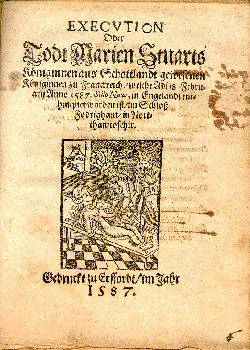 EXECVTION
Oder
Todt Marien Stuarts
Königinnen aus Schottlandt gewesenen
Königinnen zu Franckreich / welche Adi 18 Febru-
arij Anno 1587. Stilo Novo, in Engelandt ent-
heuptet worden ist / im Schloß
Fodrighaw / in Nort-
thamtoschir.
Gedruckt zu Erffordt / im Jahr
1587.